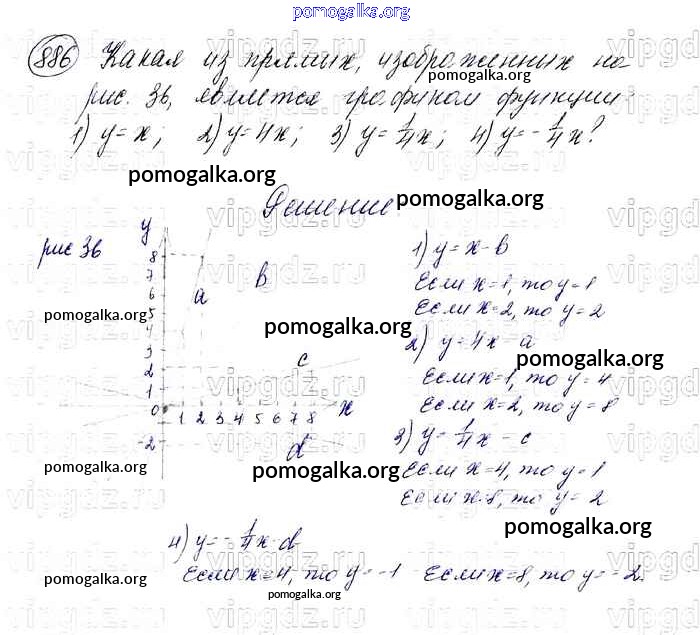 pomogalka.org
886 Какая из прямых, изображенных на
pomogalka.org
рис. 36, является графиком функции:
1) y = x; 2) y = 4x; 3) y = 1/4 x; 4) y = -1/4 x?
pomogalka.org
Решение.
pomogalka.org
рис 36
y
8
7
6
5
4
3
2
1
0
-2
1 2 3 4 5 6 7 8
x
a
b
c
d
pomogalka.org
pomogalka.org
1) y = x - b
Если x = 1, то y = 1
Если x = 2, то y = 2
2) y = 4x - a
pomogalka.org
Если x = 1, то y = 4
Если x = 2, то y = 8
3) y = 1/4 x - c
pomogalka.org
pomogalka.org
Если x = 4, то y = 1
Если x = 8, то y = 2
pomogalka.org
4) y = -1/4 x - d
Если x = 4, то y = -1 Если x = 8, то y = -2.
pomogalka.org
pomogalka.org
vipgdz.ru